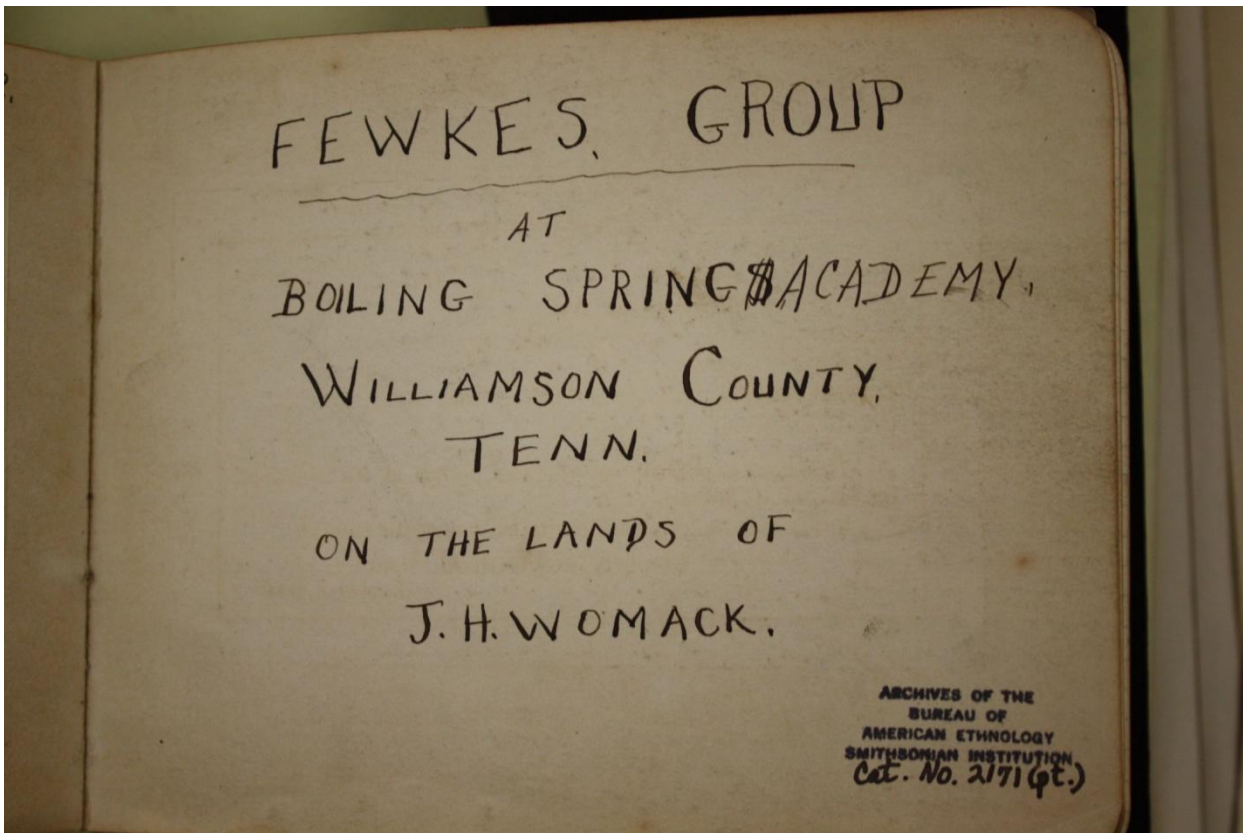 FEWKES. GROUP
AT
BOILING SPRINGS ACADEMY.
WILLIAMSON COUNTY.
TENN.
ON THE LANDS OF
J.H. WOMACK.
ARCHIVES OF THE
BUREAU OF
AMERICAN ETHNOLOGY
SMITHSONIAN INSTITUTION
Cat. No. 2171 (pt.)